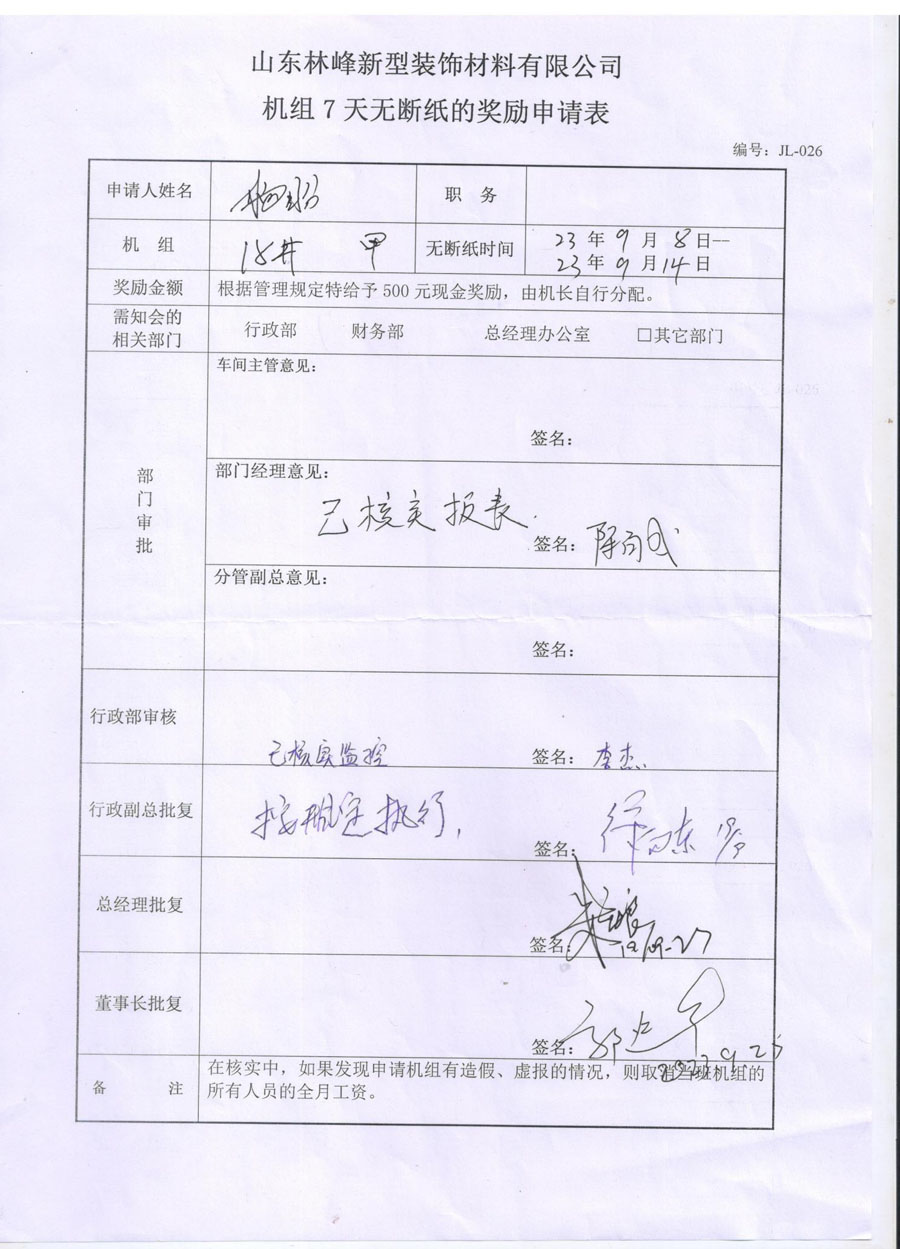 山东林峰新型装饰材料有限公司
机组 7 天无断纸的奖励申请表
编号：JL-026
申请人姓名
职 务
机 组
甲
无断纸时间
23 年 9 月 8 日--
23 年 9 月 14 日
奖励金额
根据管理规定特给予 500 元现金奖励，由机长自行分配。
需知会的
相关部门
行政部 财务部 总经理办公室 □其它部门
部门审批
车间主管意见：
签名：
部门经理意见：
已核实报表.
签名：
分管副总意见：
签名：
行政部审核
已核实监控
签名：李杰
行政副总批复
按规定执行,
签名：
总经理批复
签名：
董事长批复
签名：
备 注
在核实中，如果发现申请机组有造假、虚报的情况，则取消当班机组的
所有人员的全月工资。